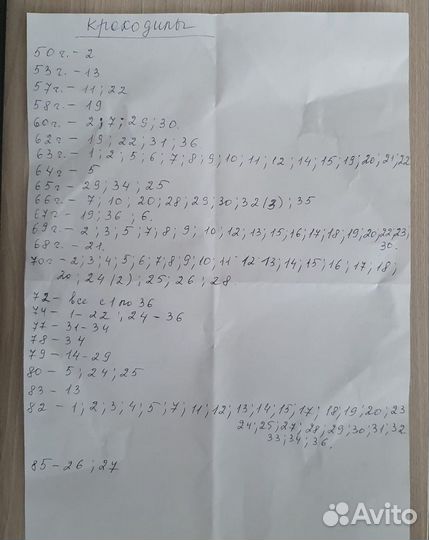 Крокодилы
50г. - 2
53г. - 13
57г. - 11; 22
58г. - 19
60г. - 2; 7; 29; 30.
62г - 19; 22; 31; 36.
63г. - 1; 2; 5; 6; 7; 8; 9; 10; 11; 12; 14; 15; 19; 20; 21; 22
64г - 5
65г - 29; 34; 25
66г. - 7; 10; 20; 28; 29; 30; 32(3); 35
67г - 19; 36; 6.
69г. - 2; 3; 5; 7; 8; 9; 10; 12; 13; 15; 16; 17; 18; 19; 20; 22; 23;
30.
68г. - 21.
70г - 2; 3; 4; 5; 6; 7; 8; 9; 10; 11 12 13; 14; 15; 16; 17; 18;
20; 24(2); 25; 26; 28
72 - все с 1 по 36
74 - 1 - 22; 24 - 36
77 - 31 - 34
78 - 34
79 - 14 - 29
80 - 5; 24; 25
83 - 13
82 - 1; 2; 3; 4; 5; 7; 11; 12; 13; 14; 15; 17; 18; 19; 20; 23
24; 25; 27; 28; 29; 30; 31; 32
33; 34; 36.
85 - 26; 27
Avito